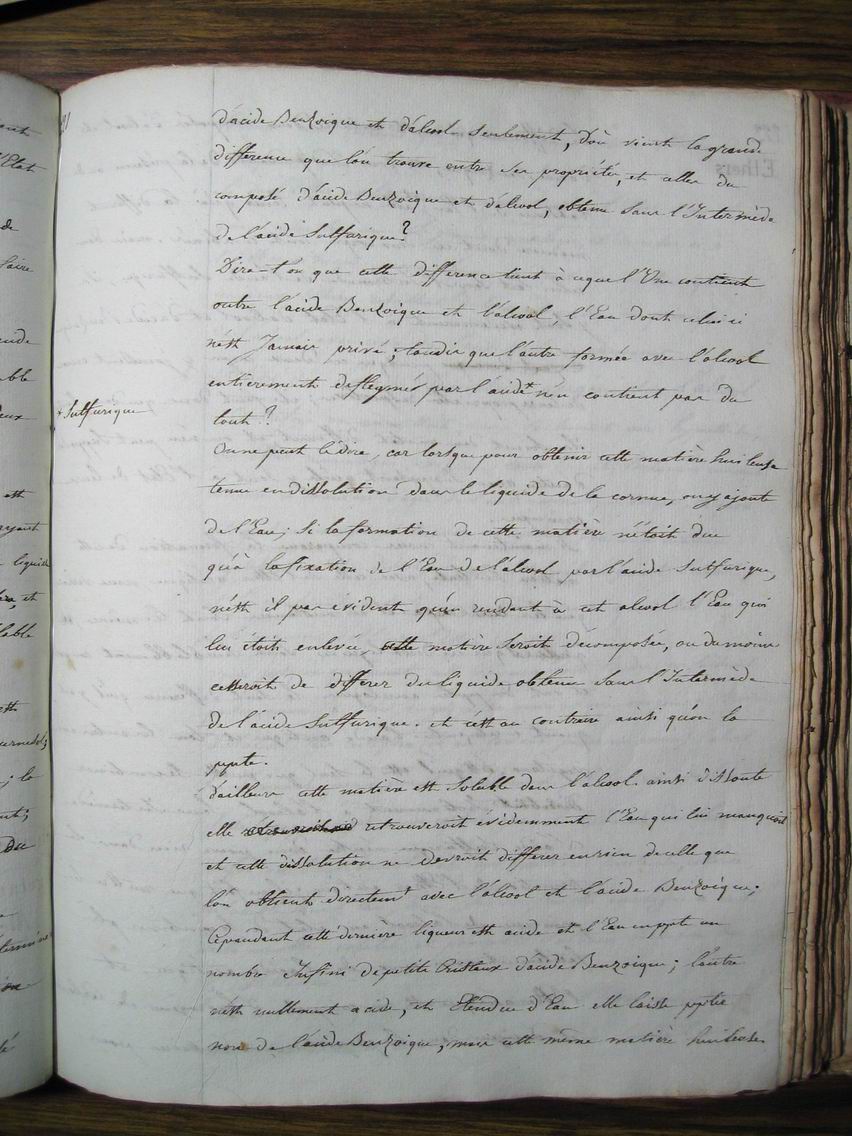 d'acide Benzoique et d'alcool seulement, D'où vient la grande
différence que l'on trouve entre ses propriétés, et celles du
composé d'acide Benzoique et d'alcool, obtenu sans l'Intermède
de l'acide Sulfurique?
Dira-t'on que cette différence tient à ce que l'Une contient
outre l'acide Benzoique et l'alcool, l'Eau dont celui ci
n'est Jamais privé; tandis que l'autre formée avec l'alcool
entierement deflegmé par l'acide + n'en contient pas du
+ Sulfurique
tout?
On ne peut le dire, car lorsque pour obtenir cette matière huileuse
tenue en dissolution dans le liquide de la cornue, on y ajoute
de l'Eau; Si la formation de cette matière n'étoit due
qu'à la fixation de l'Eau de l'alcool par l'acide Sulfurique,
n'est il pas évident qu'en rendant à cet alcool l'Eau qui
lui étoit enlevée, cette matière Seroit décomposée, ou du moins
cesseroit de différer du liquide obtenu sans l'Intermède
de l'acide Sulfurique. et c'est au contraire ainsi qu'on la
ppte.
D'ailleurs cette matière est Soluble dans l'alcool. ainsi dissoute
elle retrouveroit évidemment l'Eau qui lui manquoit
et cette dissolution ne devroit différer en rien de celle que
l'on obtient directemt avec l'alcool et l'acide Benzoique;
Cependant cette dernière liqueur est acide et l'Eau en ppte un
nombre Infini de petits Cristaux d'acide Benzoique; l'autre
n'est nullement acide, et Etendue d'Eau elle laisse pptér
non de l'acide Benzoique, mais cette même matière huileuse